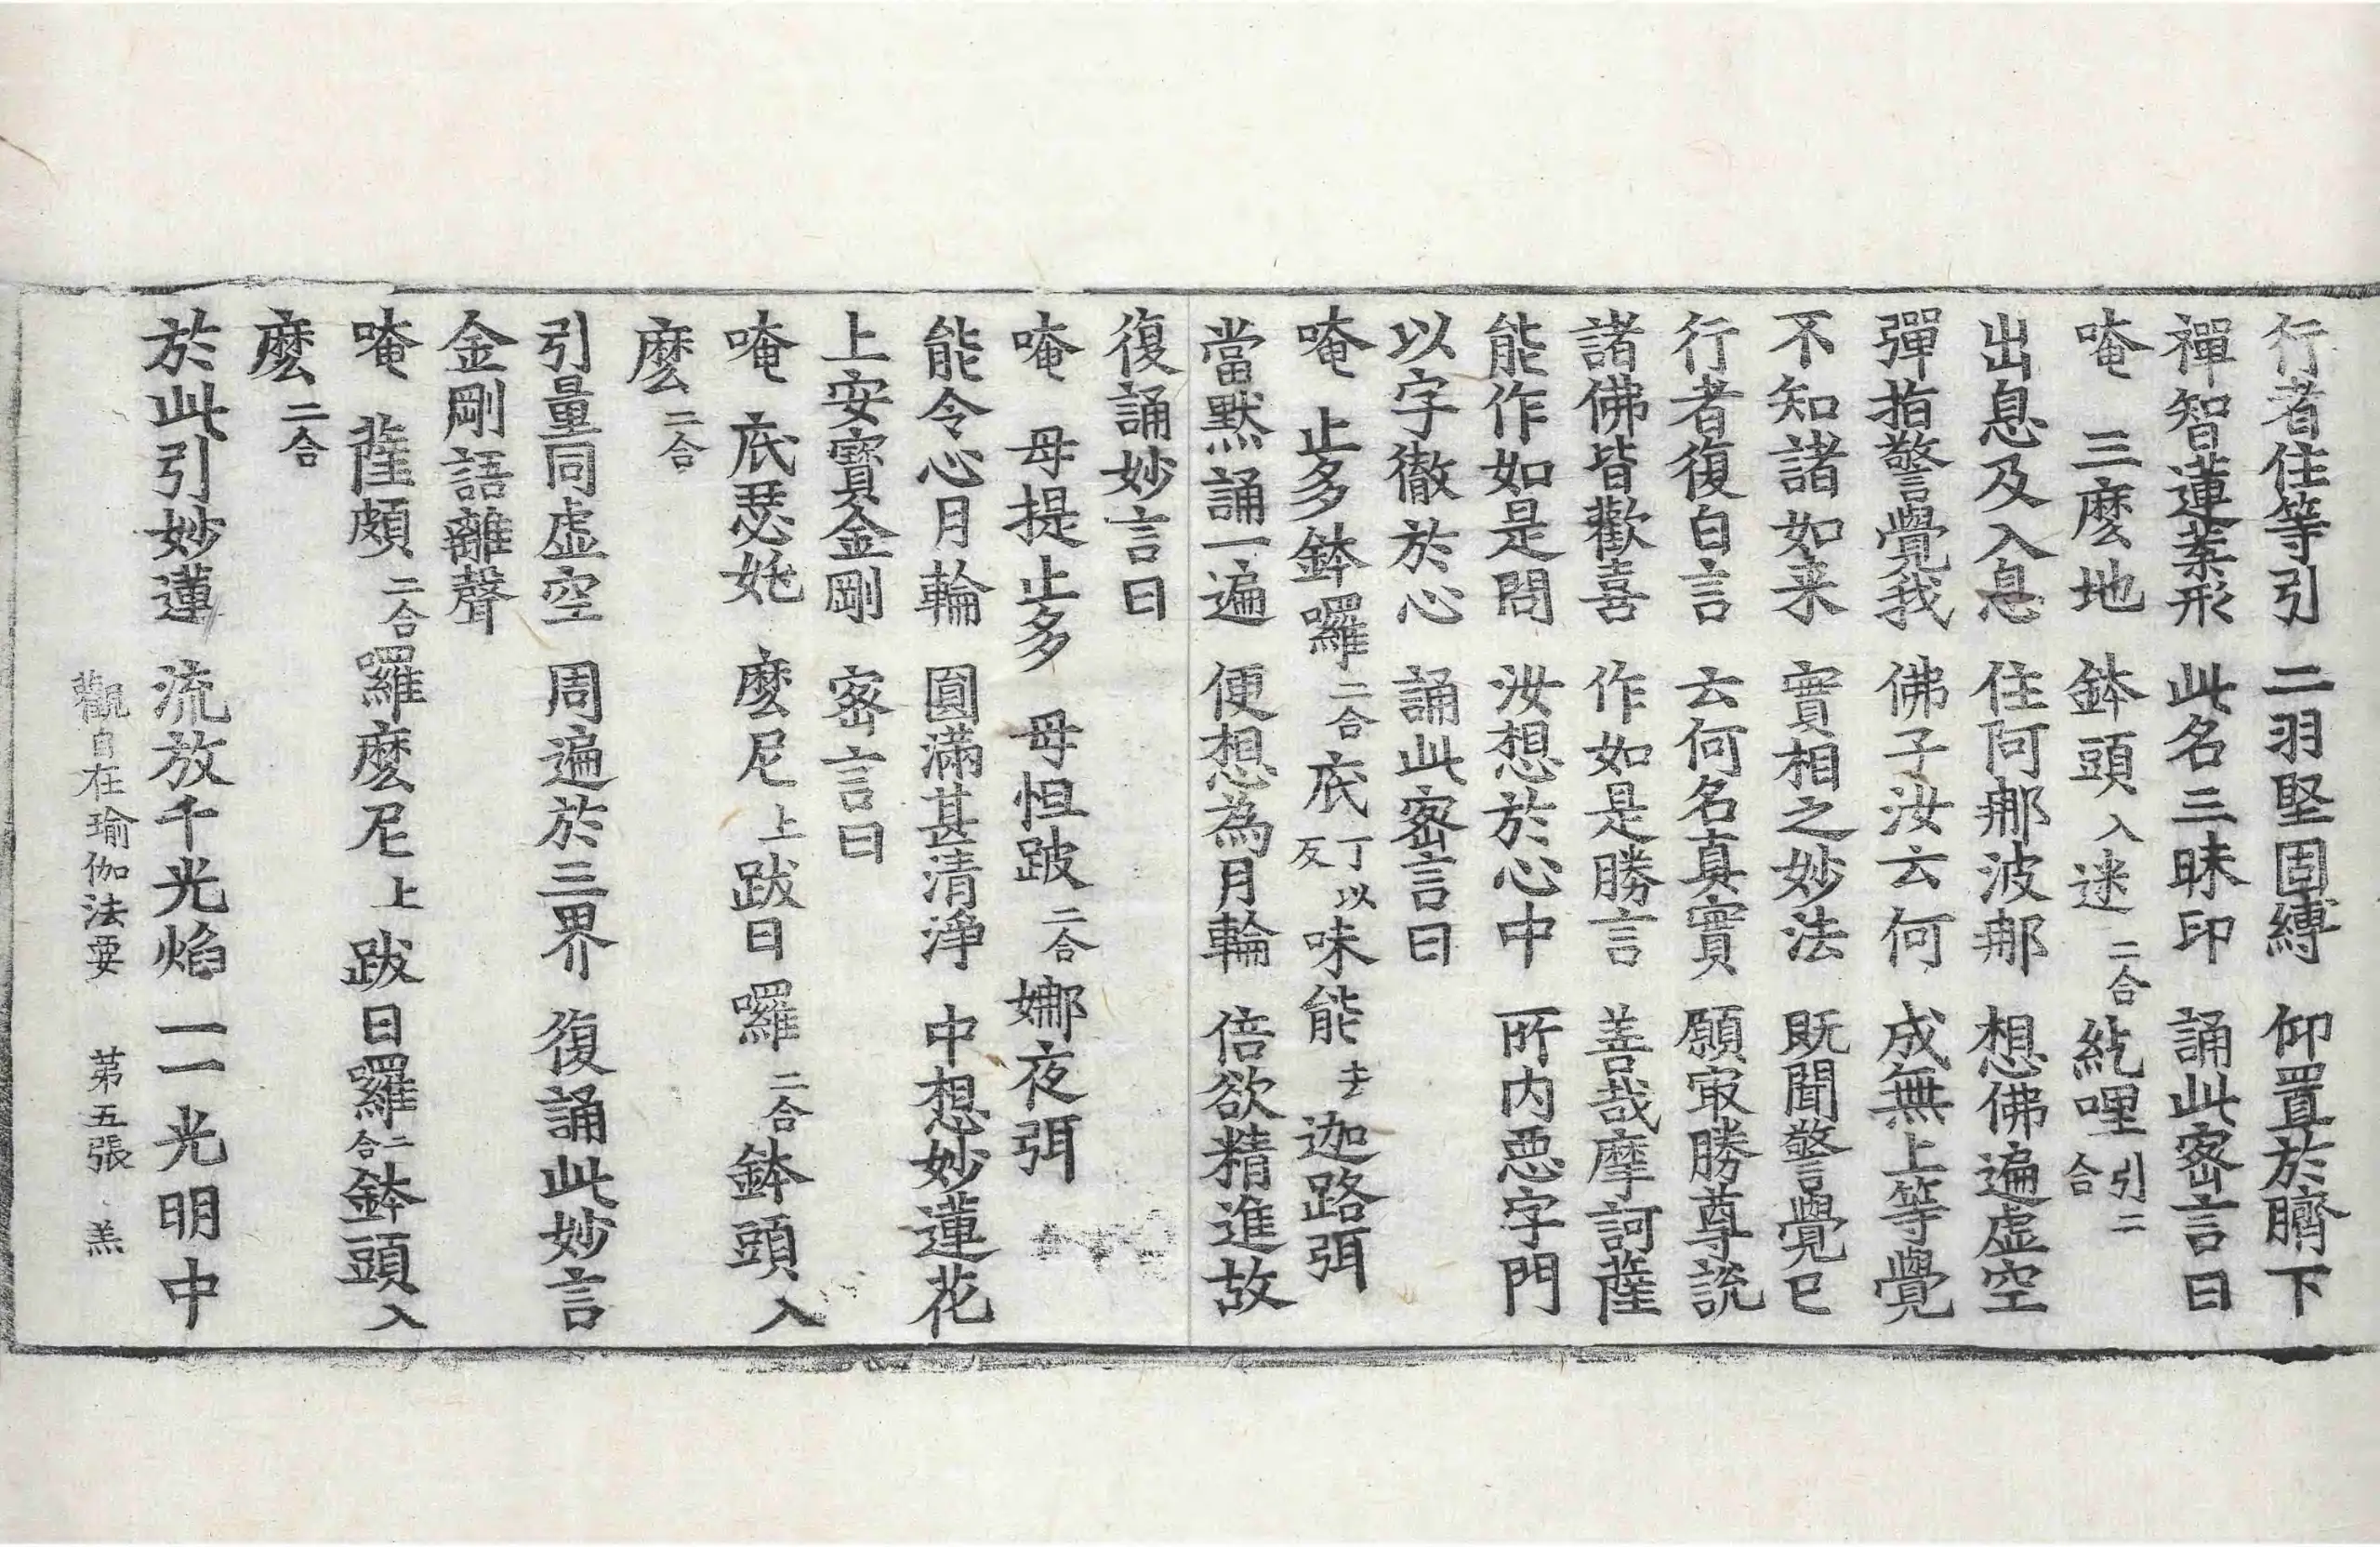 行者住等引 二羽堅固縛 仰置於臍下
禪智蓮葉形 此名三昧印 誦此密言曰
唵 三麼地 鉢頭入迷二合紇哩引二合
出息及入息 住阿那波那 想佛遍虛空
彈指警覺我 佛子汝云何 成無上等覺
不知諸如来 實相之妙法 既聞警覺已
行者復白言 云何名真實 願㝡勝尊説
諸佛皆歡喜 作如是勝言 善哉摩訶薩
能作如是問 汝想於心中 所内惡字門
以字徹於心 誦此密言曰
唵 止多鉢囉二合底丁以反味能去迦路弭
當默誦一遍 便想為月輪 倍欲精進故
復誦妙言曰
唵 母提止多 母怛跛二合娜夜弭
能令心月輪 圓滿甚清淨 中想妙蓮花
上安寶金剛 密言曰
唵 底瑟姹 麼尼上跋日囉二合鉢頭入
麼二合
引量同虛空 周遍於三界 復誦此妙言
金剛語離聲
唵 薩頗二合囉麼尼上跋日囉二合鉢頭入
麼二合
於此引妙蓮 流放千光焰 一一光明中
觀自在瑜伽法要 第五張 羔